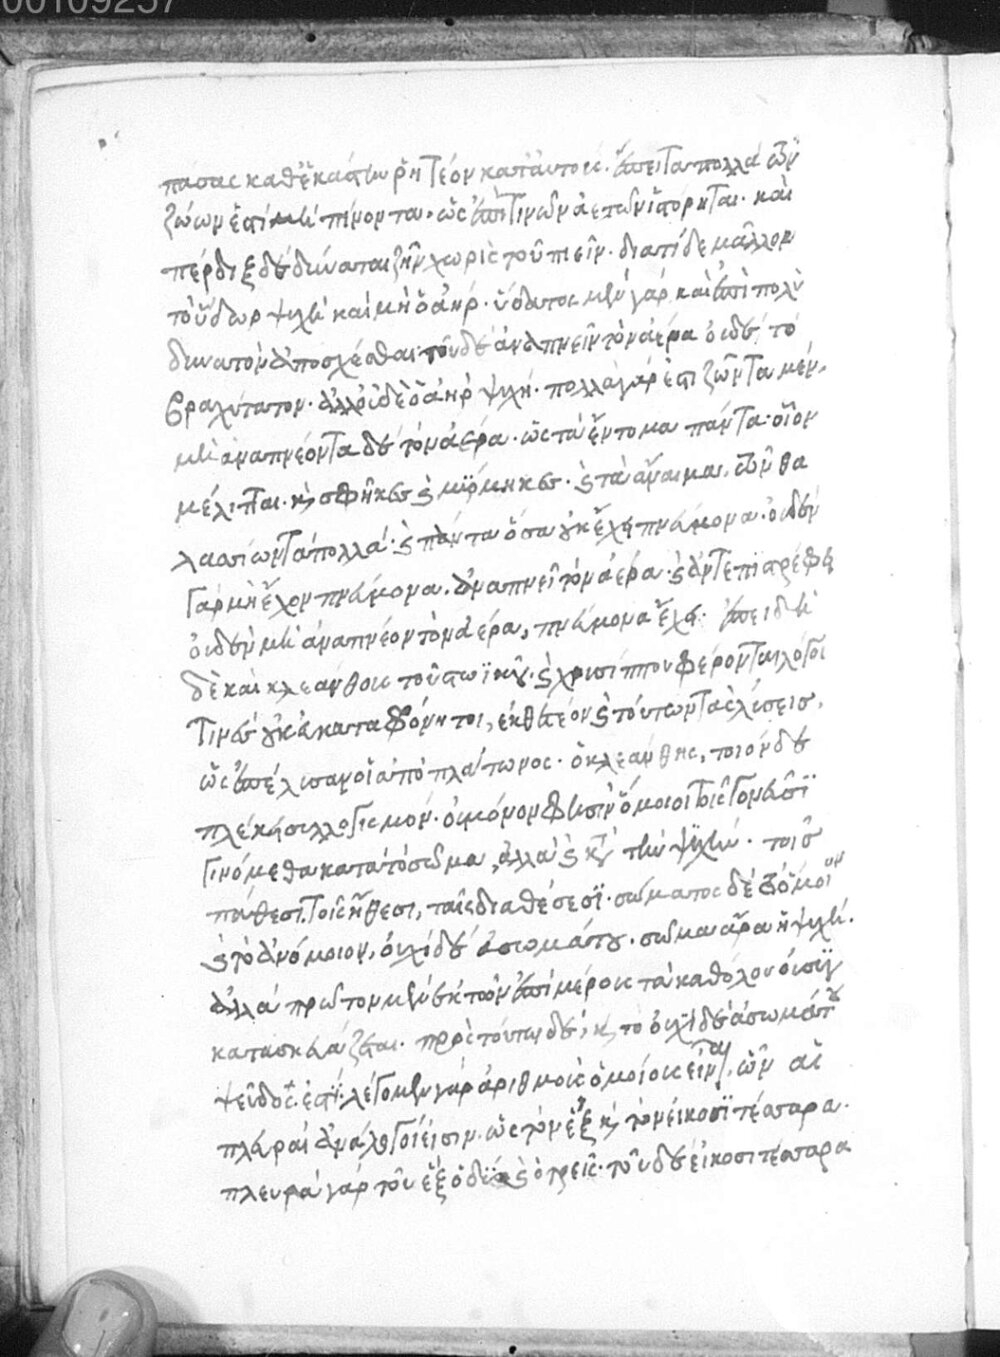 00109257
πάσας καθ' ἑκάστην ῥητέον κατ' αὐτούς. ἔπειτα πολλὰ τῶν
ζώων ἐστὶ μὴ πίνοντα. ὡς ἐπί τινων ἀετῶν ἱστόρηται. καὶ
πέρδιξ δὲ δύναται ζῆν χωρὶς τοῦ πιεῖν. διατί δὲ μᾶλλον
τὸ ὕδωρ ψυχὴ καὶ μὴ ὁ ἀήρ. ὕδατος μὲν γὰρ καὶ ἐπὶ πολὺ
δυνατὸν ἀποσχέσθαι· τοῦ δὲ ἀναπνεῖν τὸν ἀέρα οὐδὲ τὸ
βραχύτατον. ἀλλ' οὐδὲ ὁ ἀὴρ ψυχή. πολλὰ γάρ ἐστι ζῶντα μὲν.
μὴ ἀναπνέοντα δὲ τὸν ἀέρα. ὡς τὰ ἔντομα πάντα. οἷον
μέλιτται. καὶ σφῆκες καὶ μύρμηκες. καὶ τὰ ἄναιμα. τῶν θα
λασσίων τὰ πολλά. καὶ πάντα ὅσα οὐκ ἔχει πνεύμονα. οὐδὲν
γὰρ μὴ ἔχον πνεύμονα. ἀναπνεῖ τὸν ἀέρα. καὶ ἀντεπιστρέφει
οὐδὲν μὴ ἀναπνέον τὸν ἀέρα, πνεύμονα ἔχει. ἐπειδὴ
δὲ καὶ κλεάνθους τοῦ στωϊκοῦ. καὶ χρυσίππου φέρονται λόγοι
τινὲς οὐκ εὐκαταφρόνητοι, ἐκθετέον καὶ τούτων τὰς λύσεις,
ὡς ἐπέλυσαν οἱ ἀπὸ πλάτωνος. ὁ κλεάνθης, τοιόνδε
πλέκει συλλογισμόν. οὐ μόνον φησὶν ὅμοιοι τοῖς γονεῦσϊ
γινόμεθα κατὰ τὸ σῶμα, ἀλλὰ καὶ κατὰ τὴν ψυχήν. τοῖς
πάθεσι. τοῖς ἤθεσι, ταῖς διαθέσεσϊ. σώματος δὲ τὸ ὅμοιον
καὶ τὸ ἀνόμοιον, οὐχὶ δὲ ἀσωμάτου. σῶμα ἄρα ἡ ψυχή.
ἀλλὰ πρῶτον μὲν ἐκ τῶν ἐπὶ μέρους τὰ καθόλου οὐ συν
κατασκευάζεται. πρὸς τούτῳ δὲ, καὶ τὸ οὐχὶ δὲ ἀσωμάτου
ψεῦδός ἐστϊ. λέγομεν γὰρ ἀριθμοὺς ὁμοίους εἶναι, ὧν αἱ
πλευραὶ ἀνάλογοί εἰσιν. ὡς τὸν ἓξ καὶ τὸν εἴκοσϊ τέσσαρα.
πλευραὶ γὰρ τοῦ ἓξ ὁ δύο καὶ ὁ τρεῖς. τοῦ δὲ εἴκοσι τέσσαρα